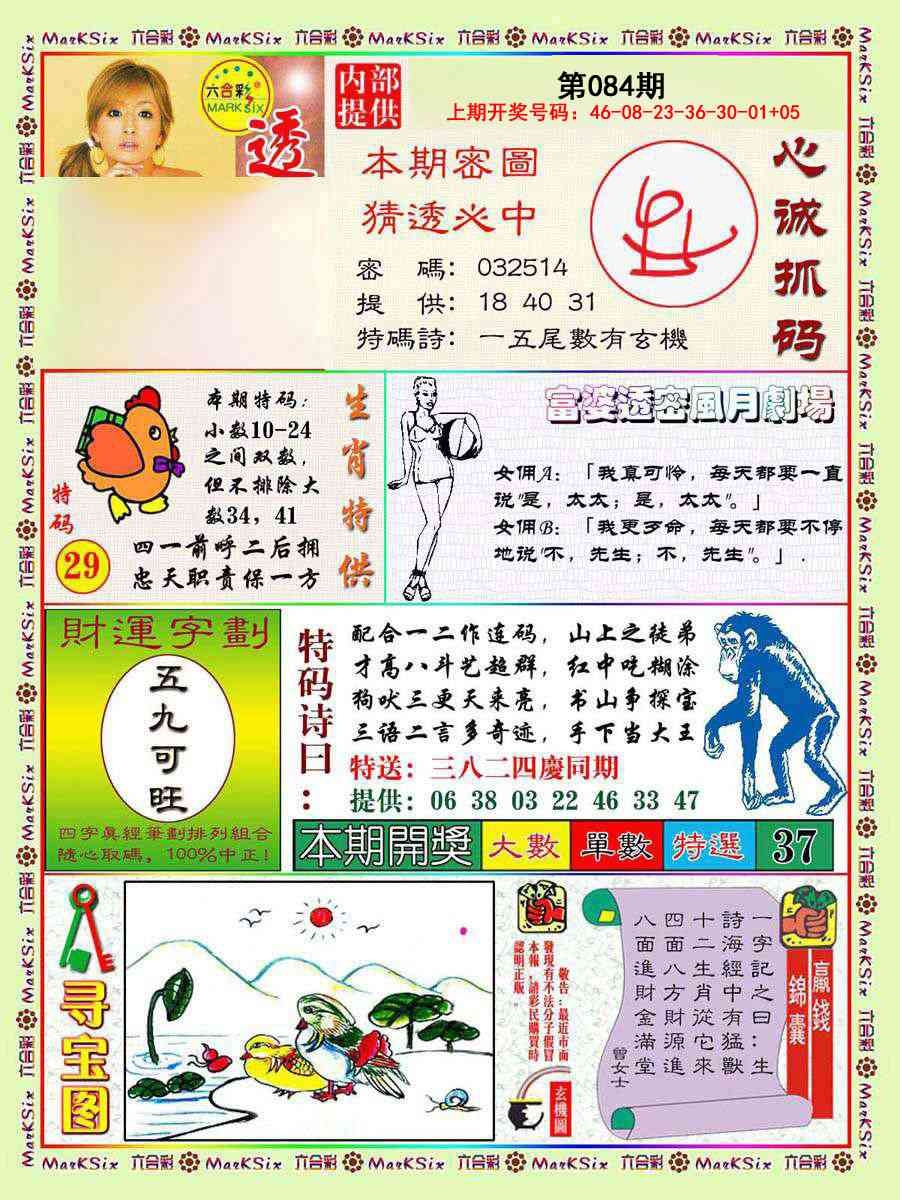 MarKSix 六合彩 MarKSix 六合彩 MarKSix 六合彩 MarKSix 六合彩 MarKSix 六合彩
六合彩
MARKSix
透
内部
提供
第084期
上期开奖号码：46-08-23-36-30-01+05
本期密圖
猜透必中
密 碼：032514
提 供：18 40 31
特碼詩：一五尾數有玄機
心诚抓码
特码
29
本期特码：
小数10-24
之间双数，
但不排除大
数34，41
四一前呼二后拥
忠天职责保一方
生肖特供
富婆透密風月劇場
女佣A：「我真可怜，每天都要一直
说"是，太太；是，太太"。」
女佣B：「我更歹命，每天都要不停
地说"不，先生；不，先生"。」.
財運字劃
五九可旺
四字真經筆劃排列組合
隨心取碼，100%中正！
特码诗曰：
配合一二作连码，山上之徒弟
才高八斗艺超群，红中吃糊涂
狗吠三更天来亮，书山争探宝
三语二言多奇迹，手下当大王
特送：三八二四慶同期
提供：06 38 03 22 46 33 47
本期開獎 大數 單數 特選 37
寻宝图
敬告：最近市面
發現有不法分子假冒
本報，請彩民購買時
認明正版。
玄機圖
一字記之曰：生
詩海經中有猛獸
十二生肖從它來
四面八方財源進
八面進財金滿堂
曾女士
贏錢
錦囊
MarKSix 六合彩 MarKSix 六合彩 MarKSix 六合彩 MarKSix 六合彩 MarKSix 六合彩